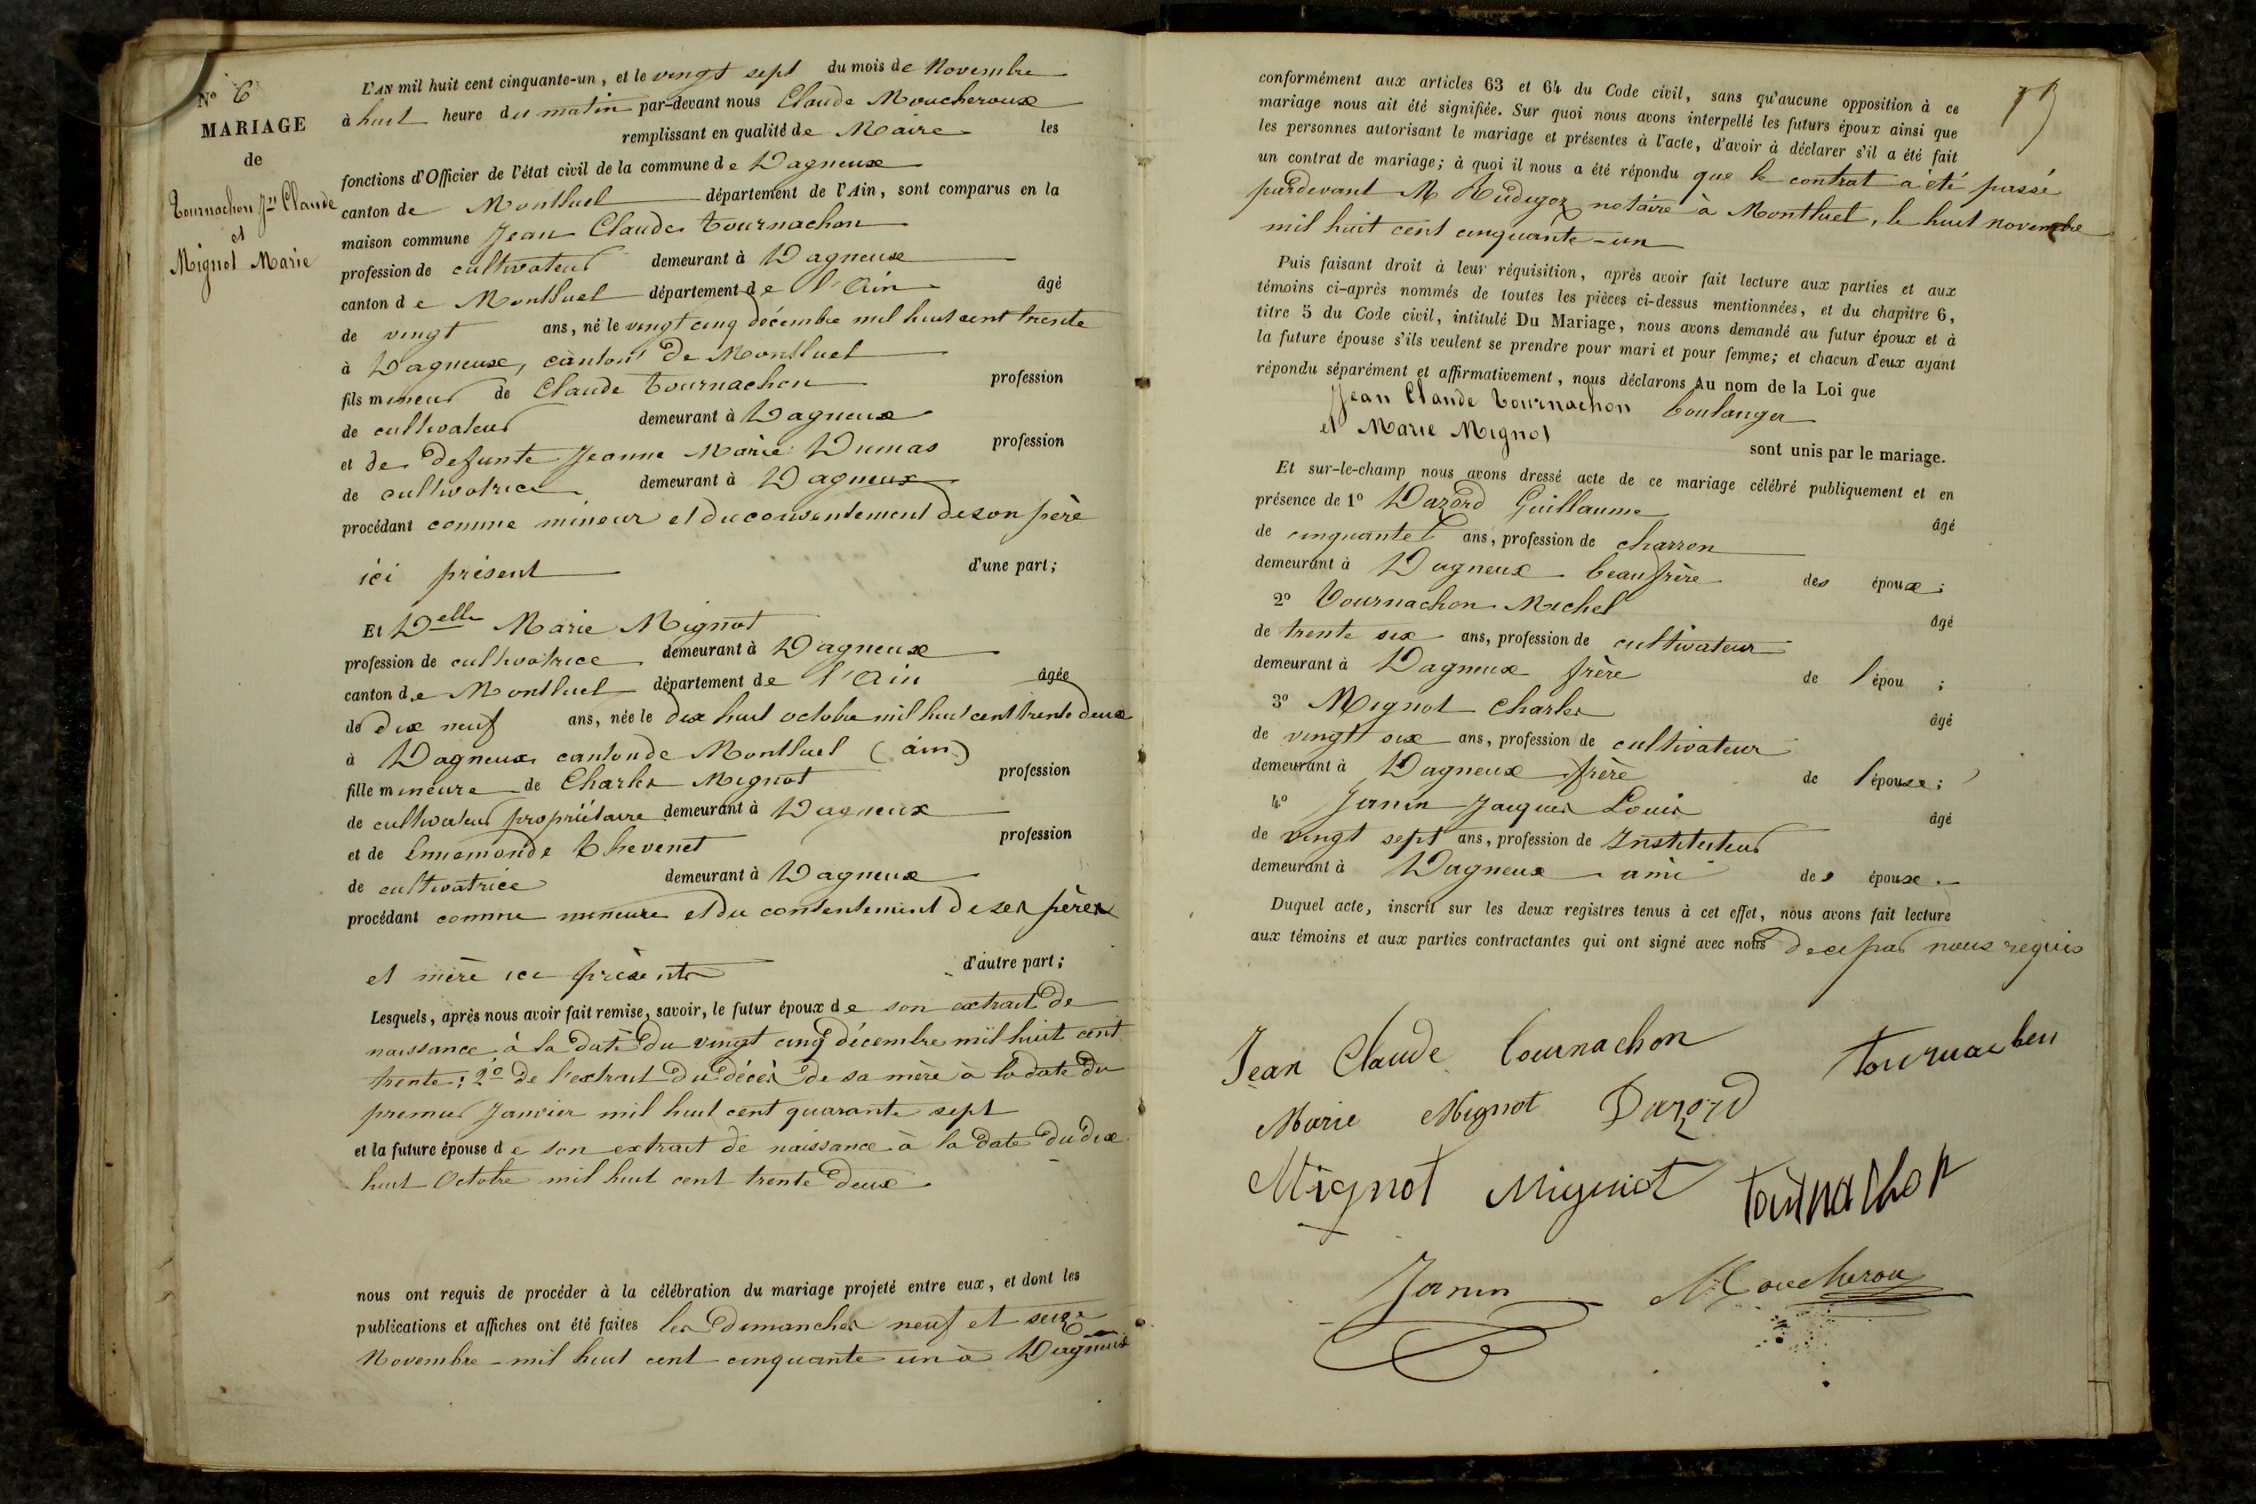 N° 6
MARIAGE
de
Tournachon Jn Claude
et
Mignot Marie
L'AN mil huit cent cinquante-un, et le vingt sept du mois de Novembre
à huit heure du matin par-devant nous Claude Moucheroux
remplissant en qualité de Maire les
fonctions d'Officier de l'état civil de la commune de Dagneux
canton de Montluel département de l'Ain, sont comparus en la
maison commune Jean Claude Tournachon
profession de cultivateur demeurant à Dagneux
canton de Montluel département de l'Ain âgé
de vingt ans, né le vingt cinq décembre mil huit cent trente
à Dagneux, canton de Montluel
fils mineur de Claude Tournachon profession
de cultivateur demeurant à Dagneux
et de defunte Jeanne Marie Dumas profession
de cultivatrice demeurant à Dagneux
procédant comme mineur et du consentement de son père
ici présent d'une part;
Et Delle Marie Mignot
profession de cultivatrice demeurant à Dagneux
canton de Montluel département de l'Ain âgée
de dix neuf ans, née le dix huit octobre mil huit cent trente deux
à Dagneux canton de Montluel (ain)
fille mineure de Charles Mignot profession
de cultivateur propriétaire demeurant à Dagneux
et de Ennemonde Thevenet profession
de cultivatrice demeurant à Dagneux
procédant comme mineure et du consentement de ses pères
et mère ici présents d'autre part;
Lesquels, après nous avoir fait remise, savoir, le futur époux de son extrait de
naissance à la date du vingt cinq décembre mil huit cent
trente; 2° de l'extrait du décès de sa mère à la date du
premier Janvier mil huit cent quarante sept
et la future épouse de son extrait de naissance à la date du dix
huit Octobre mil huit cent trente deux
nous ont requis de procéder à la célébration du mariage projeté entre eux, et dont les
publications et affiches ont été faites les dimanches neuf et seize
Novembre mil huit cent cinquante un à Dagneux
conformément aux articles 63 et 64 du Code civil, sans qu'aucune opposition à ce
mariage nous ait été signifiée. Sur quoi nous avons interpellé les futurs époux ainsi que
les personnes autorisant le mariage et présentes à l'acte, d'avoir à déclarer s'il a été fait
un contrat de mariage; à quoi il nous a été répondu que le contrat a été passé
pardevant M Rudigoz notaire à Montluel, le huit novembre
mil huit cent cinquante-un
Puis faisant droit à leur réquisition, après avoir fait lecture aux parties et aux
témoins ci-après nommés de toutes les pièces ci-dessus mentionnées, et du chapitre 6,
titre 5 du Code civil, intitulé Du Mariage, nous avons demandé au futur époux et à
la future épouse s'ils veulent se prendre pour mari et pour femme; et chacun d'eux ayant
répondu séparément et affirmativement, nous déclarons Au nom de la Loi que
Jean Claude Tournachon boulanger
et Marie Mignot
sont unis par le mariage.
Et sur-le-champ nous avons dressé acte de ce mariage célébré publiquement et en
présence de 1° Dazord Guillaume âgé
de cinquante ans, profession de charron
demeurant à Dagneux beaufrère des époux;
2° Tournachon Michel âgé
de trente six ans, profession de cultivateur
demeurant à Dagneux frère de l'épou ;
3° Mignot Charles âgé
de vingt six ans, profession de cultivateur
demeurant à Dagneux frère de l'épouse;
4° Janin Jacques Louis âgé
de vingt sept ans, profession de Instituteur
demeurant à Dagneux ami des époux.
Duquel acte, inscrit sur les deux registres tenus à cet effet, nous avons fait lecture
aux témoins et aux parties contractantes qui ont signé avec nous de ce par nous requis
Jean Claude Tournachon
Marie Mignot Dazord
Mignot Mignot tournachon
Janin Moucheroux